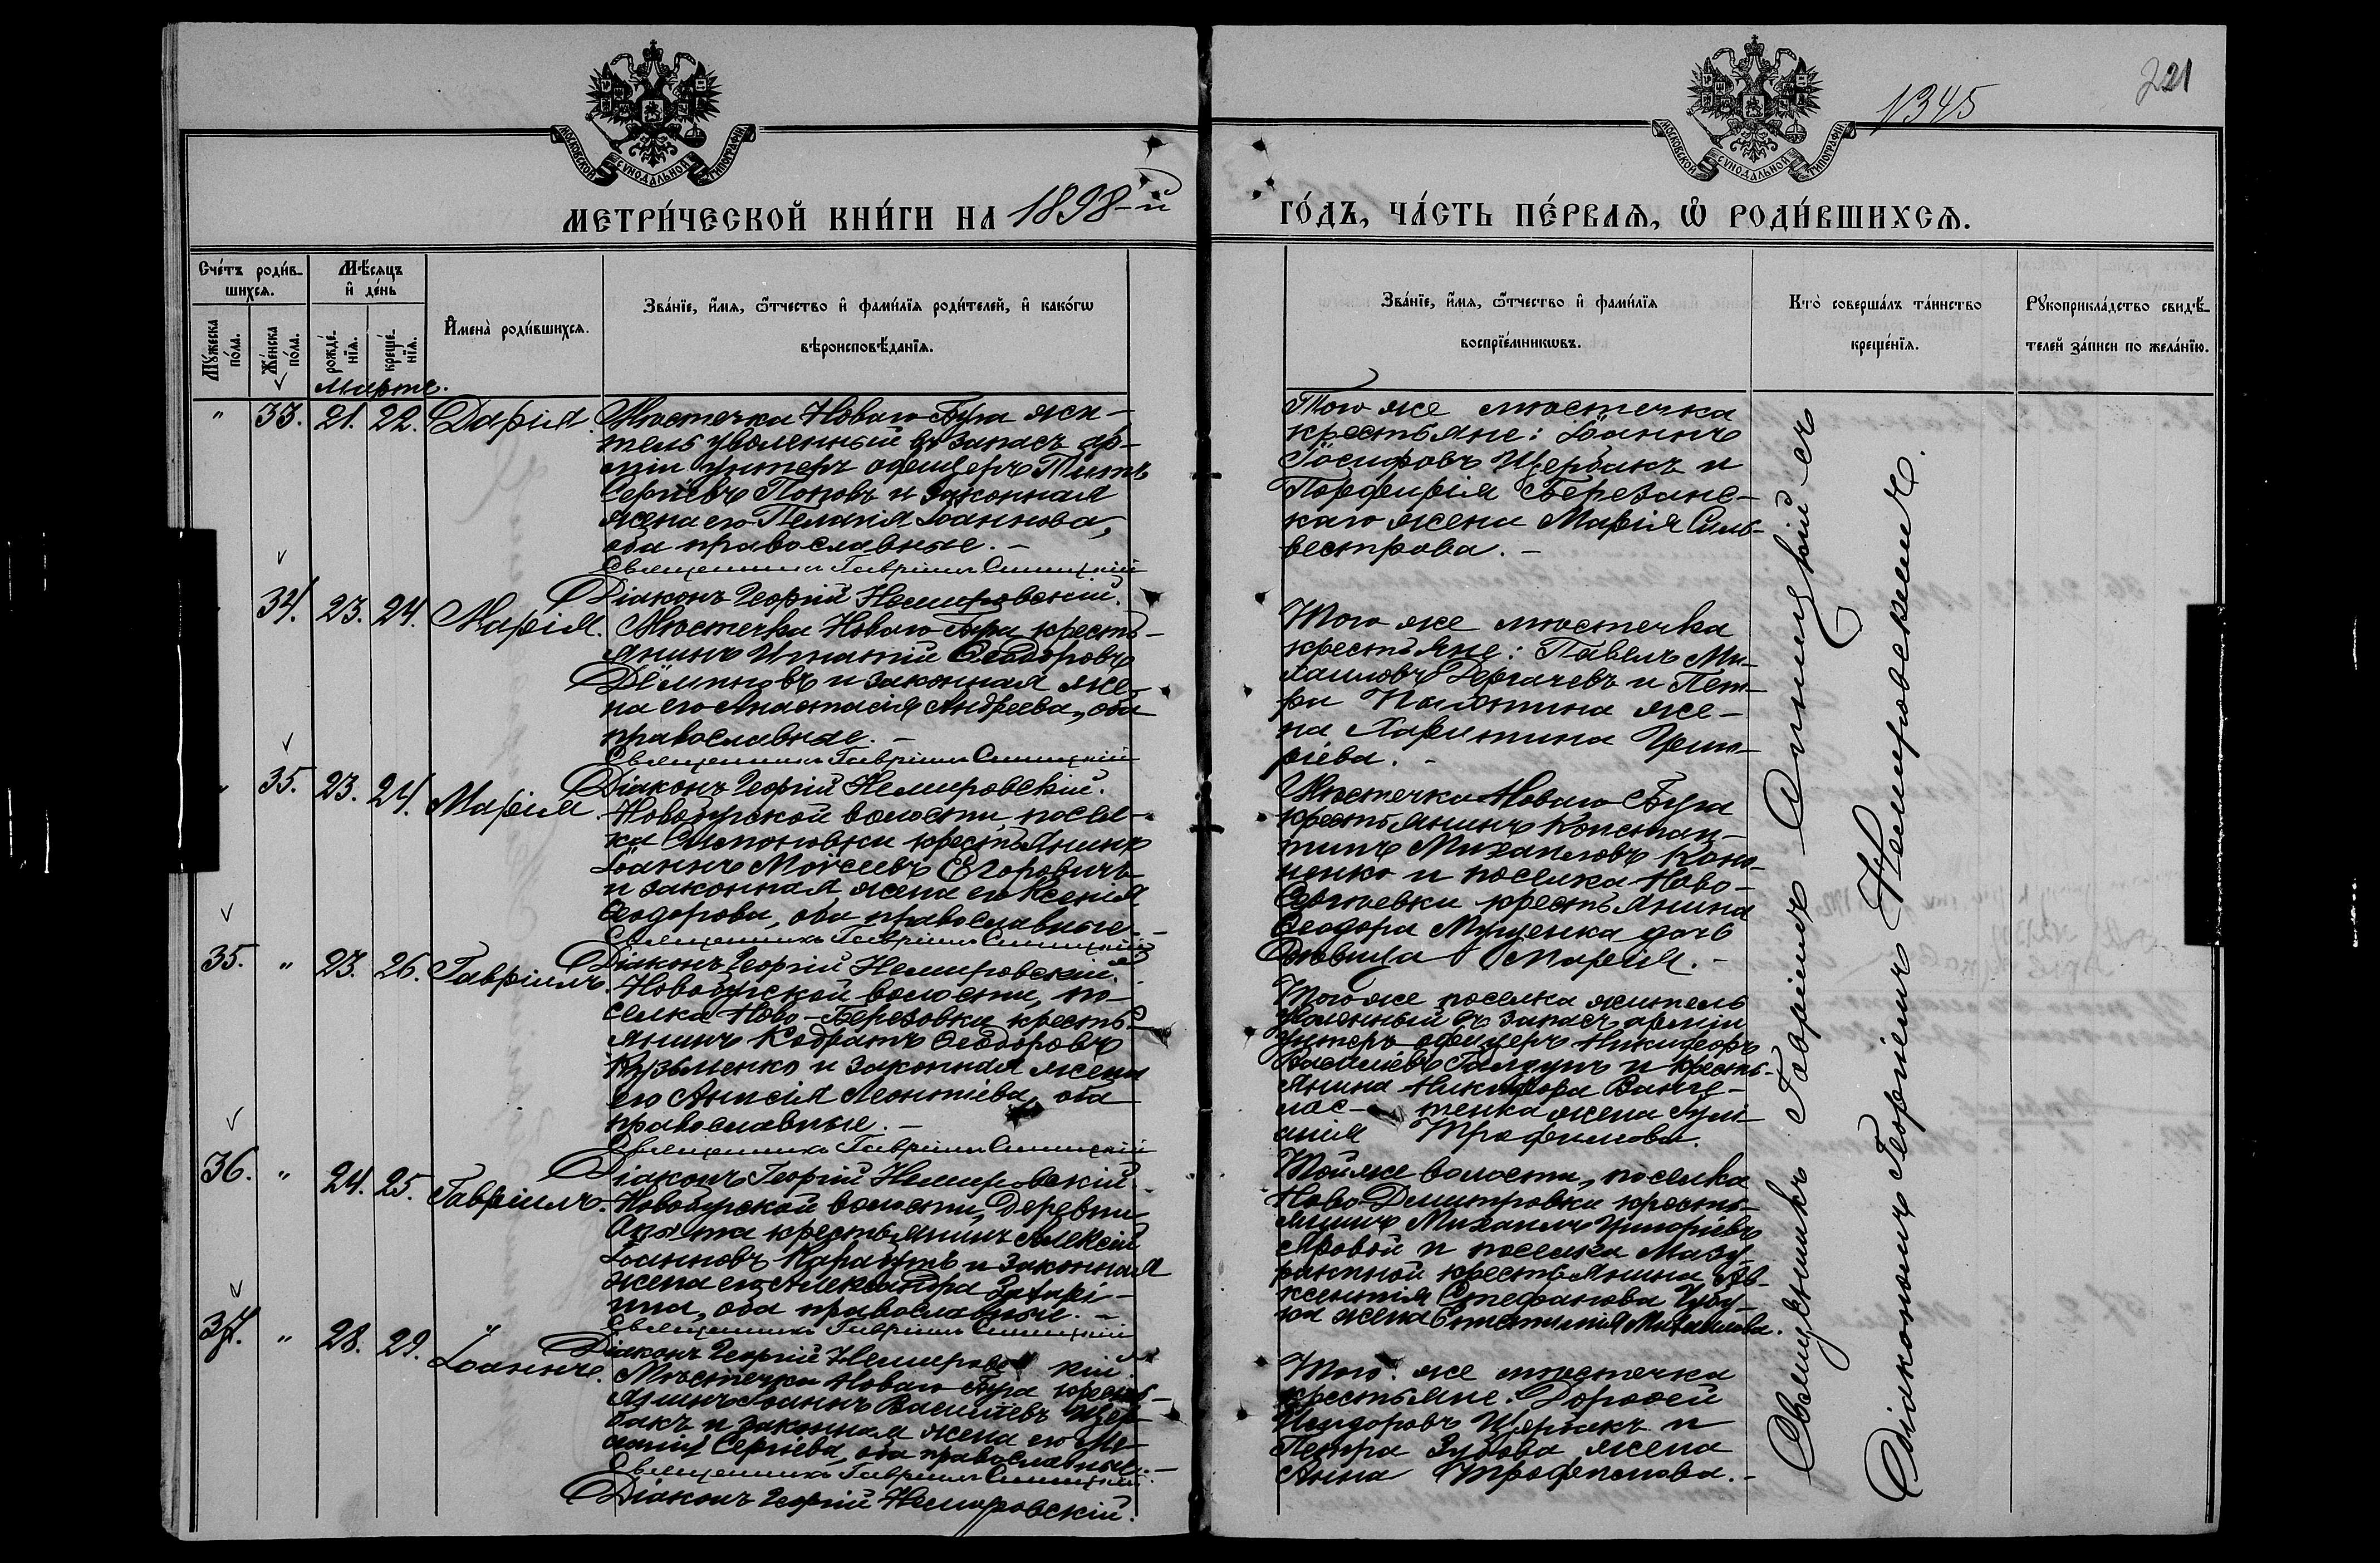 1345
221
МОСКОВСКОЙ СѴНОДАЛЬНОЙ ТИПОГРАФІИ
МОСКОВСКОЙ СѴНОДАЛЬНОЙ ТИПОГРАФІИ
МЕТРИ́ЧЕСКОЙ КНИ́ГИ НА 1898-й
ГО́ДЪ, ЧА́СТЬ ПЕ́РВАѦ, Ѡ҆ РОДИ́ВШИХСѦ.
Сче́тъ роди́в-
шихсѧ.
Мѣсѧцъ
и҆ де́нь
Мꙋжеска
по́ла.
Же́нска
по́ла.
рожде́-
нїѧ.
креще́-
нїѧ.
И҆мена̀ роди́вшихсѧ.
Зва́нїе, и҆́мѧ, ѻ҆́тчество и҆ фами́лїѧ роди́телей, и҆ како́гѡ
вѣроисповѣ́данїѧ.
Зва́нїе, и҆́мѧ, ѻ҆́тчество и҆ фами́лїѧ
воспрїе́мникѡвъ.
Кто̀ соверша́лъ та́инство
креще́нїѧ.
Рꙋкоприкла́дство свидѣ́-
телей за́писи по жела́нїю.
Марта.
" 33. 21. 22. Дарія
Мѣстечка Новаго Буга жи-
тель уволенный въ запасъ ар-
міи унтеръ офицеръ Титъ
Сергіевъ Поповъ и законная
жена его Пелагія Іоаннова,
оба православные. -
Священникъ Гавріилъ Синицкій
Діаконъ Георгій Немировскій.
Того же мѣстечка
крестьяне: Іоаннъ
Іосифовъ Щербакъ и
Порфирія Березанс-
каго жена Марія Силь-
вестрова. -
34. 23. 24. Марія.
Мѣстечка Новаго Буга кресть-
янинъ Игнатій Ѳеодоровъ
Дёминовъ и законная же-
на его Анастасія Андреева, оба
православные. -
Священникъ Гавріилъ Синицкій
Діаконъ Георгій Немировскій.
Того же мѣстечка
крестьяне: Павелъ Ми-
хаиловъ Дергачевъ и Пет-
ра же-
на Харитина Григо-
ріева. -
35. 23. 24. Марія
Новобугской волости, посел-
ка Симоновки крестьянинъ
Іоаннъ Моѵсеевъ Егоровичъ
и законная жена его Ксенія
Ѳеодорова, оба православные. -
Священникъ Гавріилъ Синицкій
Діаконъ Георгій Немировскій.
Мѣстечка Новаго Буга
крестьянинъ Констан-
тинъ Михаиловъ Коно-
ненко и поселка Ново-
крестьянина
Ѳеодора Мущенка дочь
дѣвица Марія. -
35. " 23. 26. Гавріилъ.
Новобугской волости, по-
селка Ново-Березовки кресть-
янинъ Кодратъ Ѳеодоровъ
Кузьменко и законная жена
его Анисія Леонтіева, оба
православные. -
Священникъ Гавріилъ Синицкій
Діаконъ Георгій Немировскій.
Того же поселка житель
уволенный въ запасъ арміи
унтеръ офицеръ Никифоръ
Василіевъ и кресть-
янина Никифора
жена Іули-
анія Трофимова.
36. " 24. 25. Гавріилъ.
Новобугской волости, деревни
крестьянинъ Алексій
Іоанновъ и законная
жена его Александра
оба православные. -
Священникъ Гавріилъ Синицкій
Діаконъ Георгій Немировскій.
Той же волости, поселка
Ново-Димитровки кресть-
янинъ Михаилъ Григоріевъ
Яровой и поселка
крестьянина Ав-
ксентія Стефанова
жена Михаилова.
37. " 28. 29. Іоаннъ.
Мѣстечка Новаго Буга кресть-
янинъ Іоаннъ Василіевъ Щер-
бакъ и законная жена его Ме-
ланія Сергіева, оба православные. -
Священникъ Гавріилъ Синицкій
Діаконъ Георгій Немировскій.
Того же мѣстечка
крестьяне: Дороѳей
Исидоровъ Щербакъ и
Петра Зубова жена
Анна Трофимова. -
Священникъ Гавріилъ Синицкій съ
Діакономъ Георгіемъ Немировскимъ.